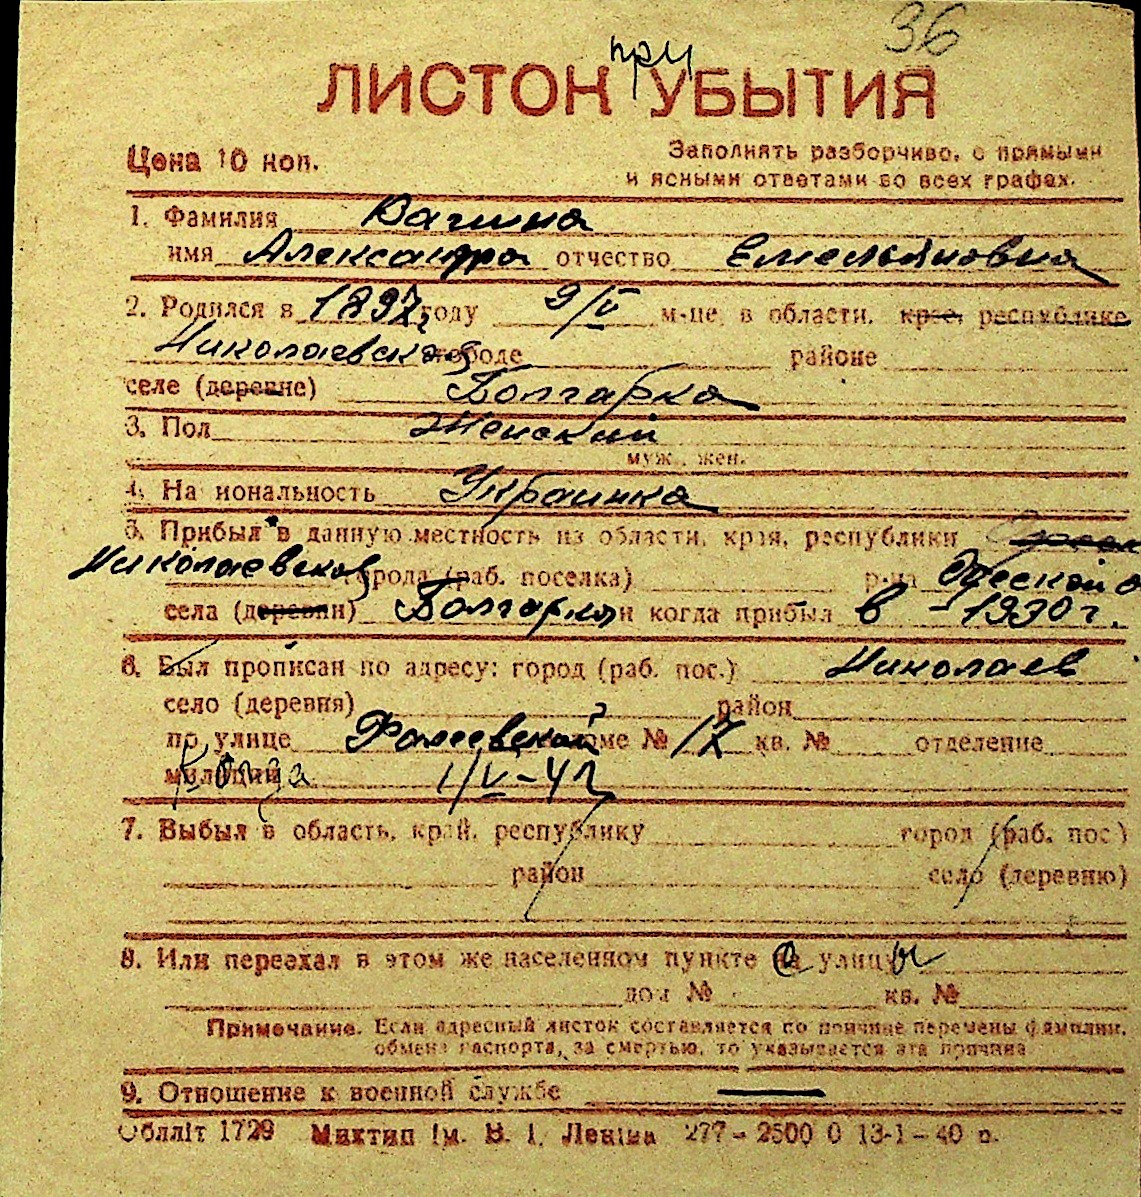 36
при
ЛИСТОК УБЫТИЯ
Цена 10 коп. Заполнять разборчиво, с прямыми
и ясными ответами во всех графах.
1. Фамилия Вагина
имя Александра отчество Емельяновна
2. Родился в 1897 году 9/V м-це, в области, крае, республике
Николаевская городе районе
селе (деревне) Болгарка
3. Пол Женский
муж., жен.
4. На иональность Украинка
5. Прибыл в данную местность из области, края, республики
Николаевской города (раб. поселка) р-на Одесской о
села (деревни) Болгарка и когда прибыл в - 1930 г.
6. Был прописан по адресу: город (раб. пос.) Николаев
село (деревня) район
по улице доме № 17 кв. № отделение
милиции Когда 1/V-42
7. Выбыл в область, край, республику город (раб. пос.)
район село (деревню)
8. Или переехал в этом же населенном пункте на с улицы
дом № кв. №
Примечание. Если адресный листок составляется по причине перемены фамилии,
обмена паспорта, за смертью, то указывается эта причина
9. Отношение к военной службе —
Обллiт 1729 Миктип iм. В. I. Ленiна 277-2500 0 13-1-40 р.